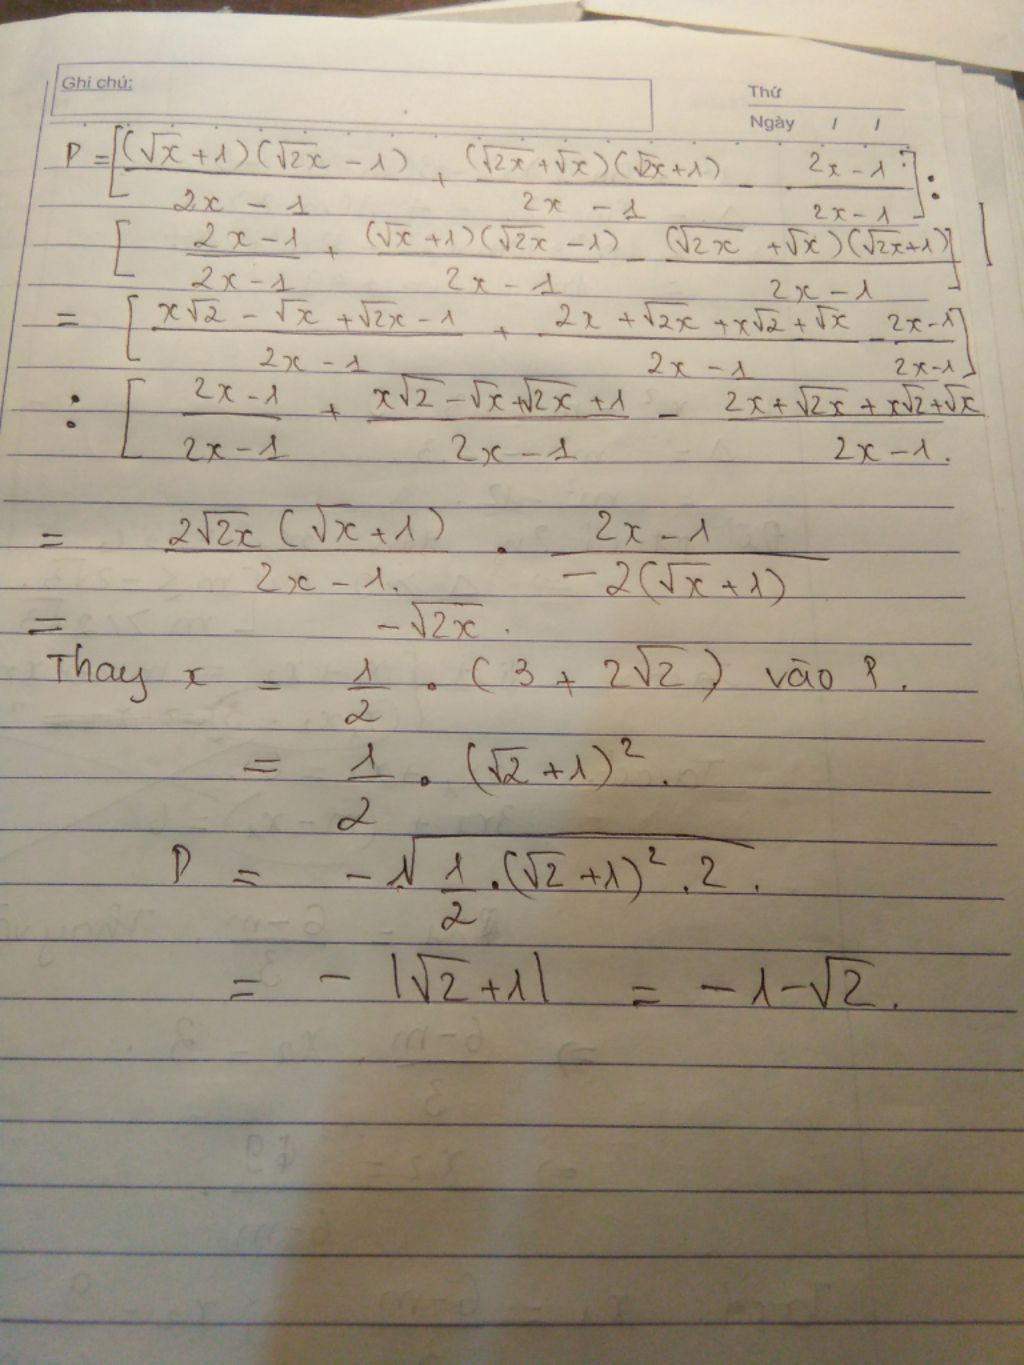 Ghi chú:
Thứ
Ngày / /
P = [ (√x + 1)(√2x - 1) / 2x - 1 + (√2x + √x)(√2x + 1) / 2x - 1 - 2x - 1 / 2x - 1 ] :
[ 2x - 1 / 2x - 1 + (√x + 1)(√2x - 1) / 2x - 1 - (√2x + √x)(√2x + 1) / 2x - 1 ]
= [ x√2 - √x + √2x - 1 / 2x - 1 + 2x + √2x + x√2 + √x / 2x - 1 - 2x - 1 / 2x - 1 ]
: [ 2x - 1 / 2x - 1 + x√2 - √x + √2x + 1 / 2x - 1 - 2x + √2x + x√2 + √x / 2x - 1.
= 2√2x (√x + 1) / 2x - 1. . 2x - 1 / -2(√x + 1)
= -√2x.
Thay x = 1/2 . (3 + 2√2) vào P.
= 1/2 . (√2 + 1)².
P = -√(1/2 . (√2 + 1)² . 2.
= - |√2 + 1| = -1 - √2.